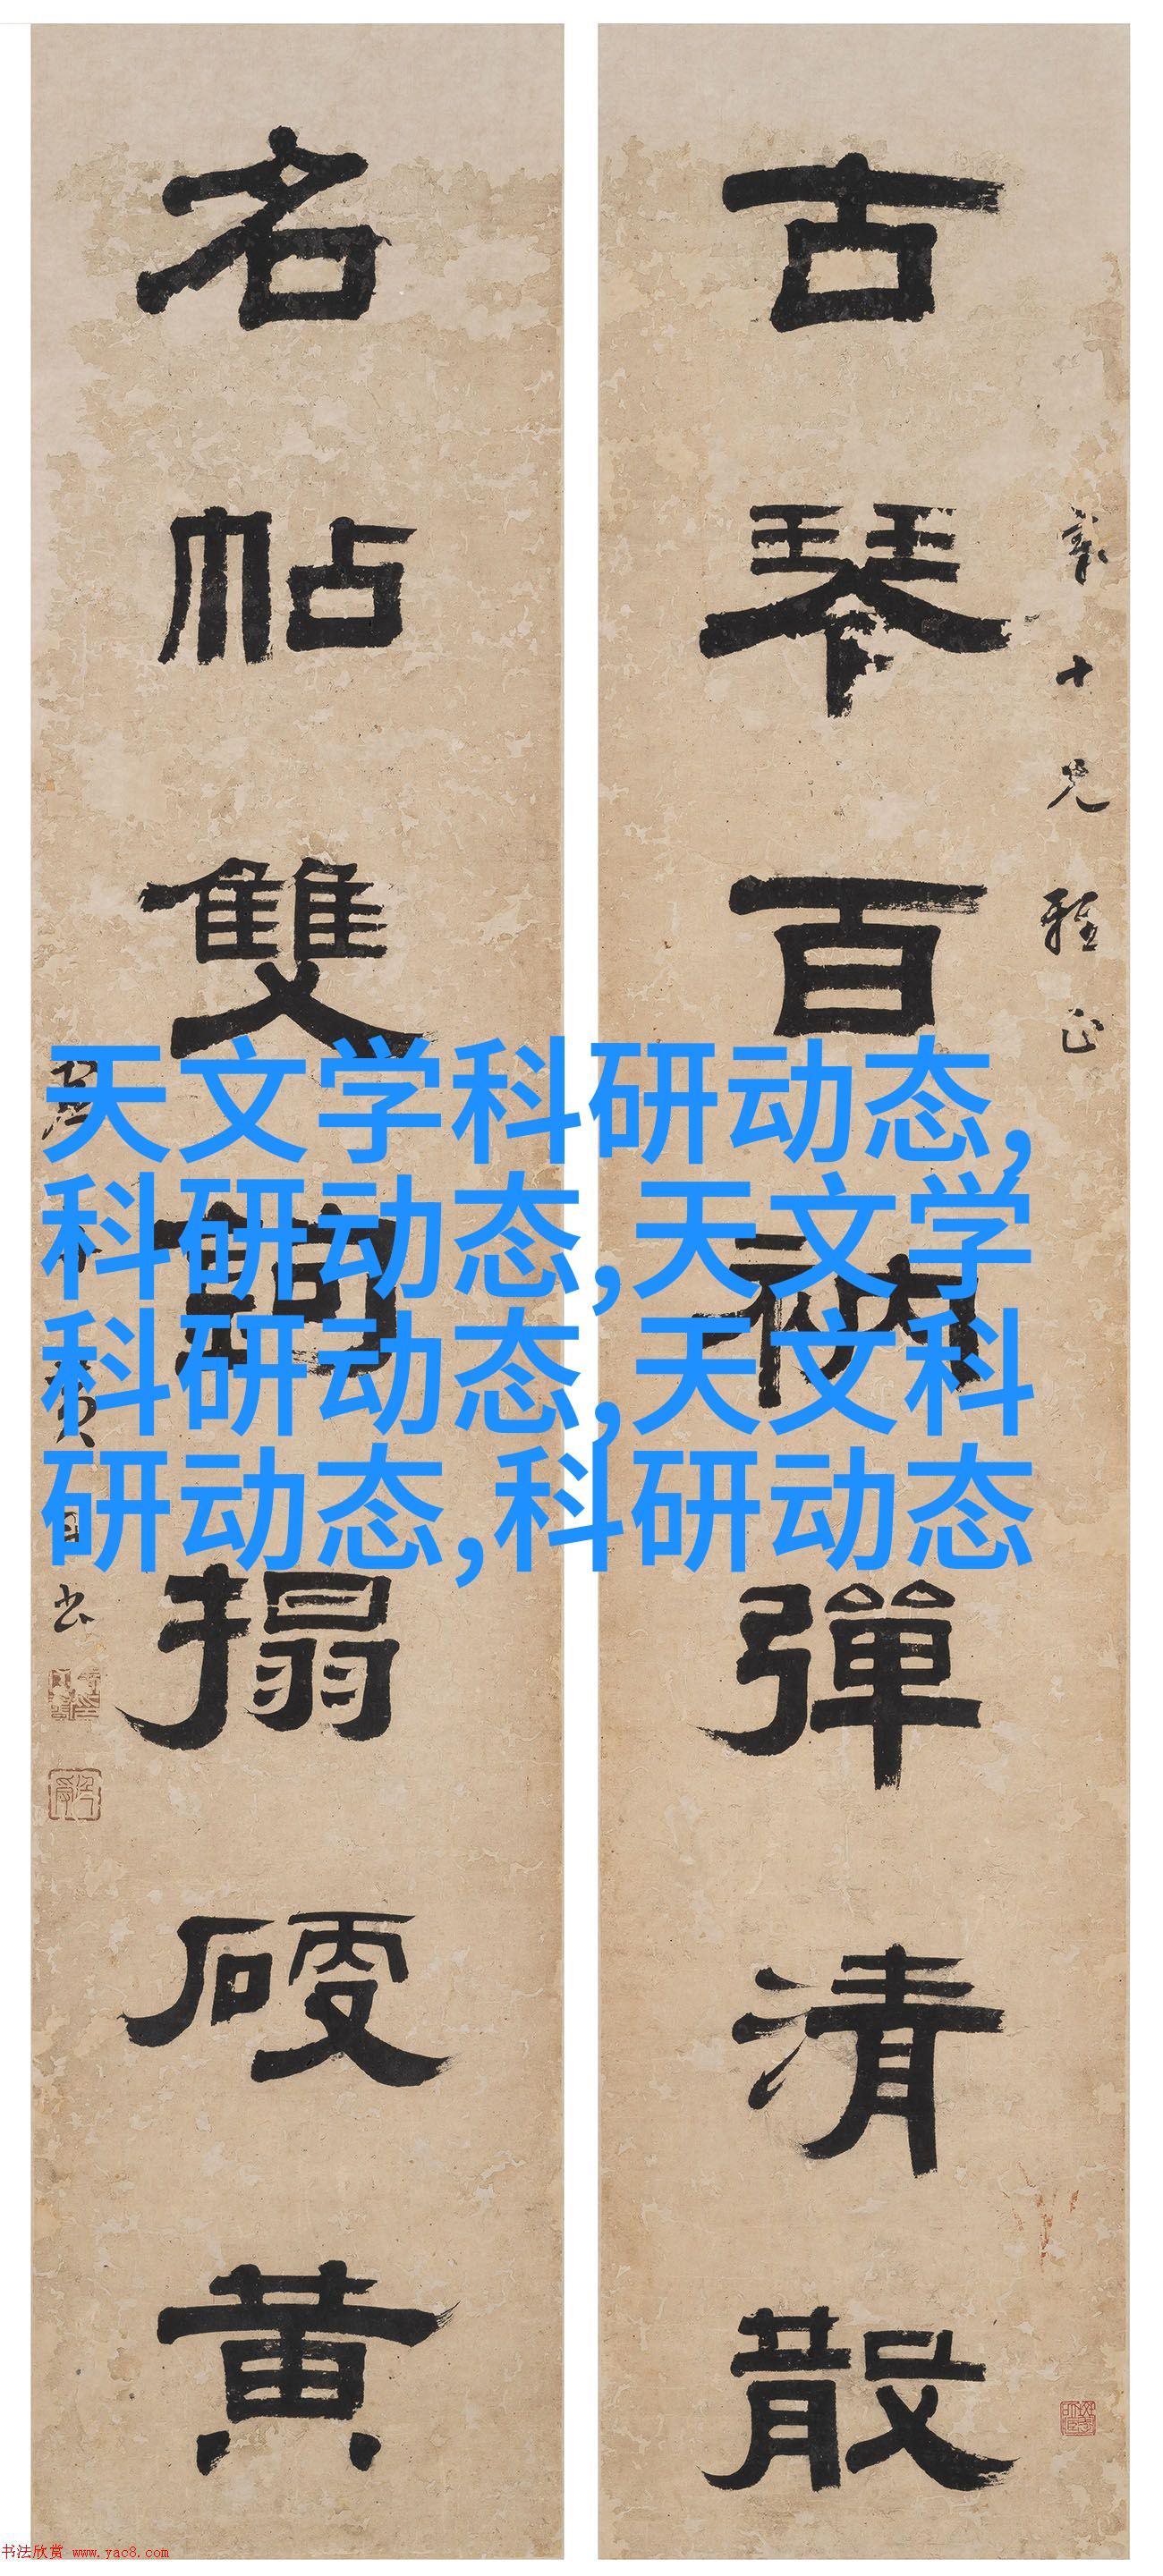 古琴百衲彈清散
名帖雙鉤搨硬黄
十兄雅正
天文学科研动态,
科研动态,天文学
科研动态,天文科
研动态,科研动态
书法欣赏 www.yac8.com